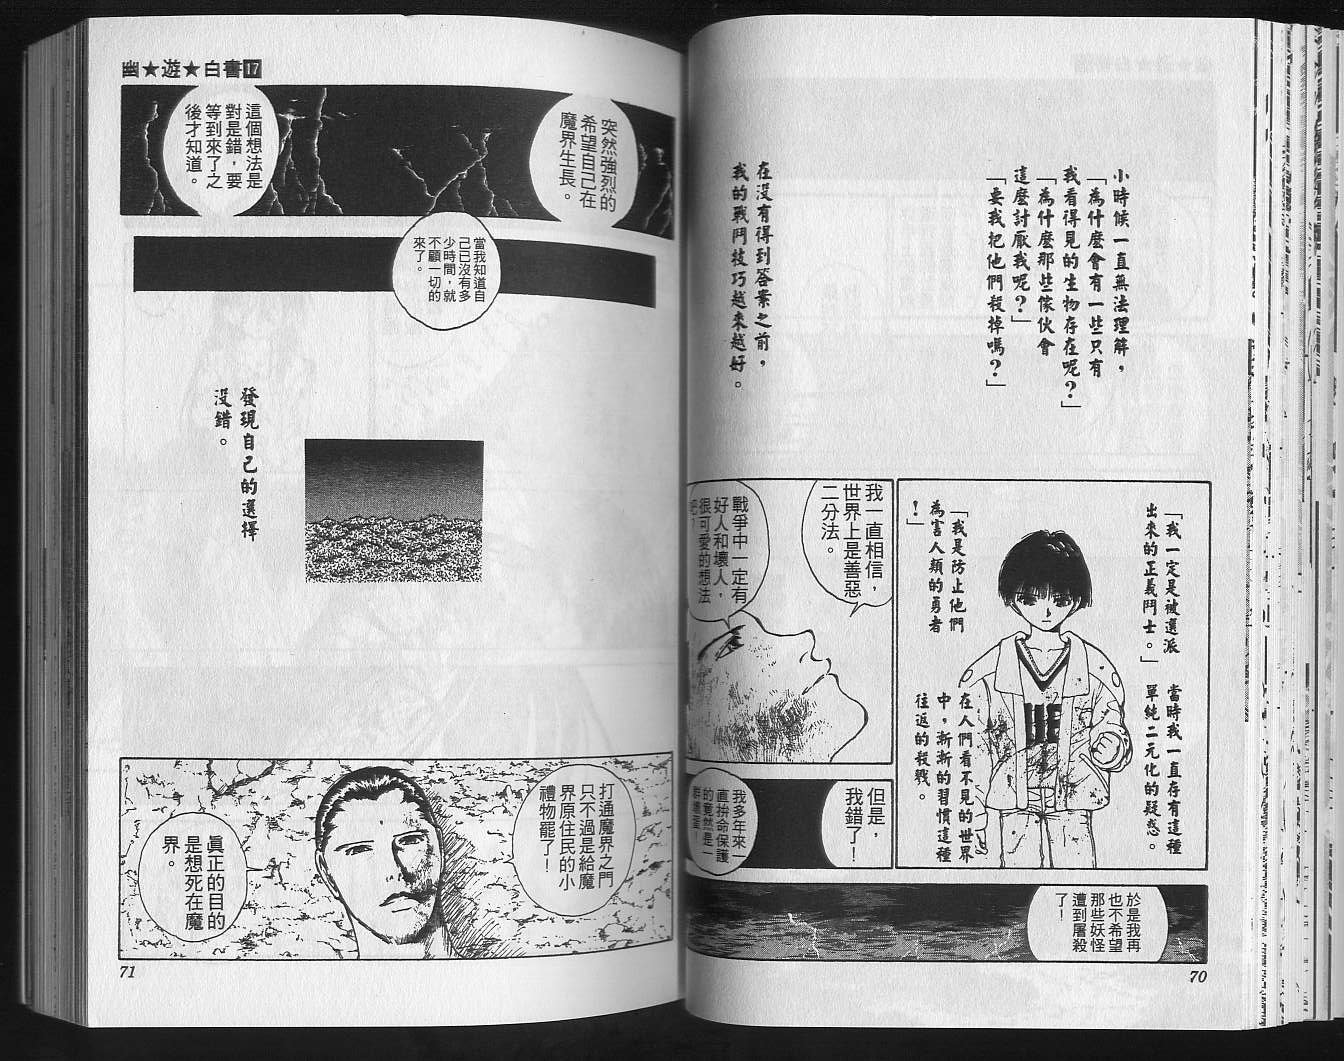 小時候一直無法理解，
「為什麼會有一些只有
我看得見的生物存在呢？」
「為什麼那些傢伙會
這麼討厭我呢？」
「要我把他們殺掉嗎？」
在沒有得到答案之前，
我的戰鬥技巧越來越好。
「我一定是被選派
出來的正義鬥士。」
當時我一直存有這種
單純二元化的疑惑。
「我是防止他們
為害人類的勇者
！」
在人們看不見的世界
中，漸漸的習慣這種
往返的殺戮。
我一直相信，
世界上是善惡
二分法。
戰爭中一定有
好人和壞人，
很可愛的想法
吧？
但是，
我錯了！
我多年來一
直拚命保護
的竟然是一
於是我再
也不希望
那些妖怪
遭到屠殺
了！
70
幽★遊★白書17
突然強烈的
希望自己在
魔界生長。
這個想法是
對是錯，要
等到來了之
後才知道。
當我知道自
己已沒有多
少時間，就
不顧一切的
來了。
發現自己的選擇
沒錯。
打通魔界之門
只不過是給魔
界原住民的小
禮物罷了！
真正的目的
是想死在魔
界。
71